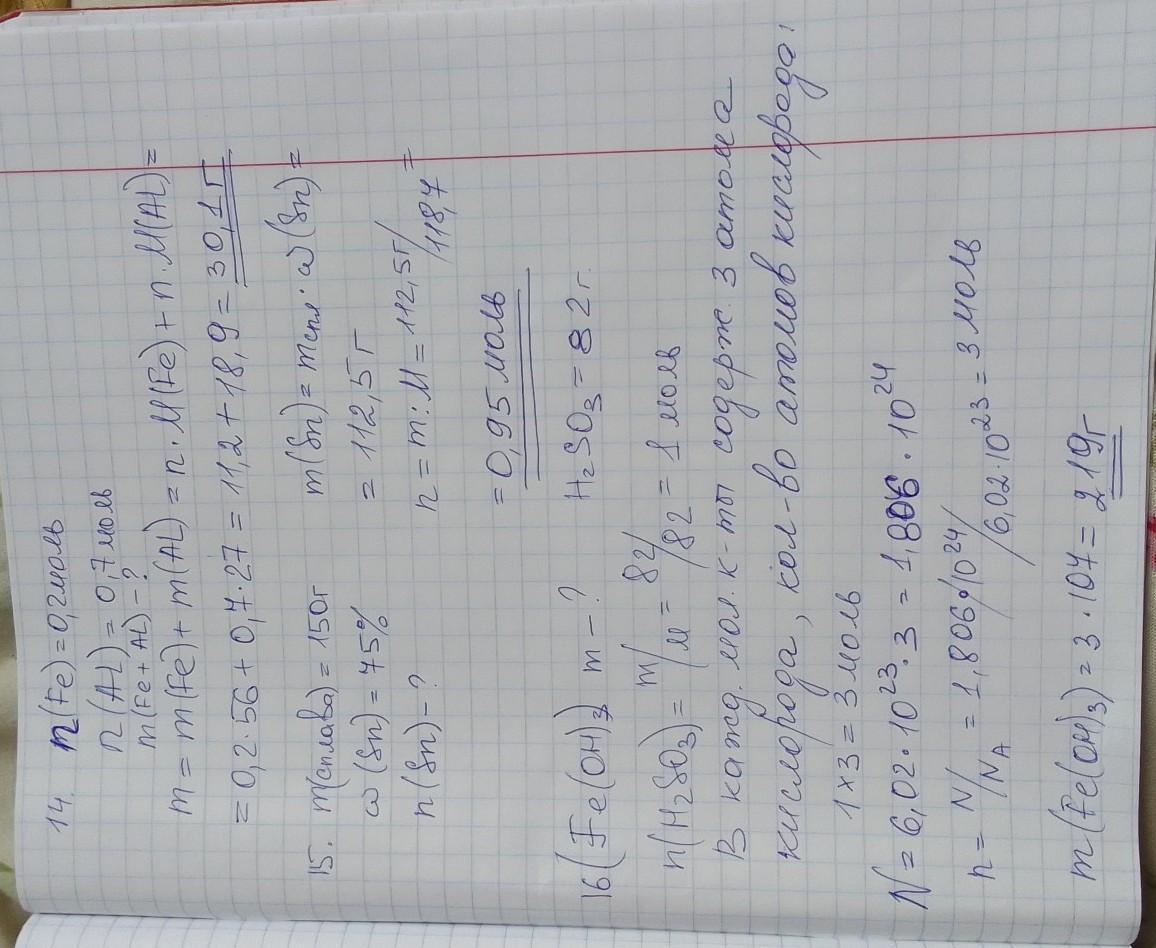 14. n(Fe)=0,2моль
n(AL)=0,7моль
m(Fe+AL)-?
m=m(Fe)+m(AL)=n·M(Fe)+n·M(AL)=
=0,2·56+0,7·27=11,2+18,9=30,1г
15. m(сплава)=150г m(Sn)=mспл·ω(Sn)=
ω(Sn)=75% =112,5г
n(Sn)-? n=m:M=112,5г/118,7=
=0,95моль
16(Fe(OH)3 m-? H2SO3=82г.
n(H2SO3)=m/M=82/82=1моль
В кажд. мол. к-ты содерж. 3 атома
кислорода, кол-во атомов кислорода:
1×3=3моль
N=6,02·10^23·3=1,806·10^24
n=N/NA=1,806·10^24/6,02·10^23=3моль
m(Fe(OH)3)=3·107=219г